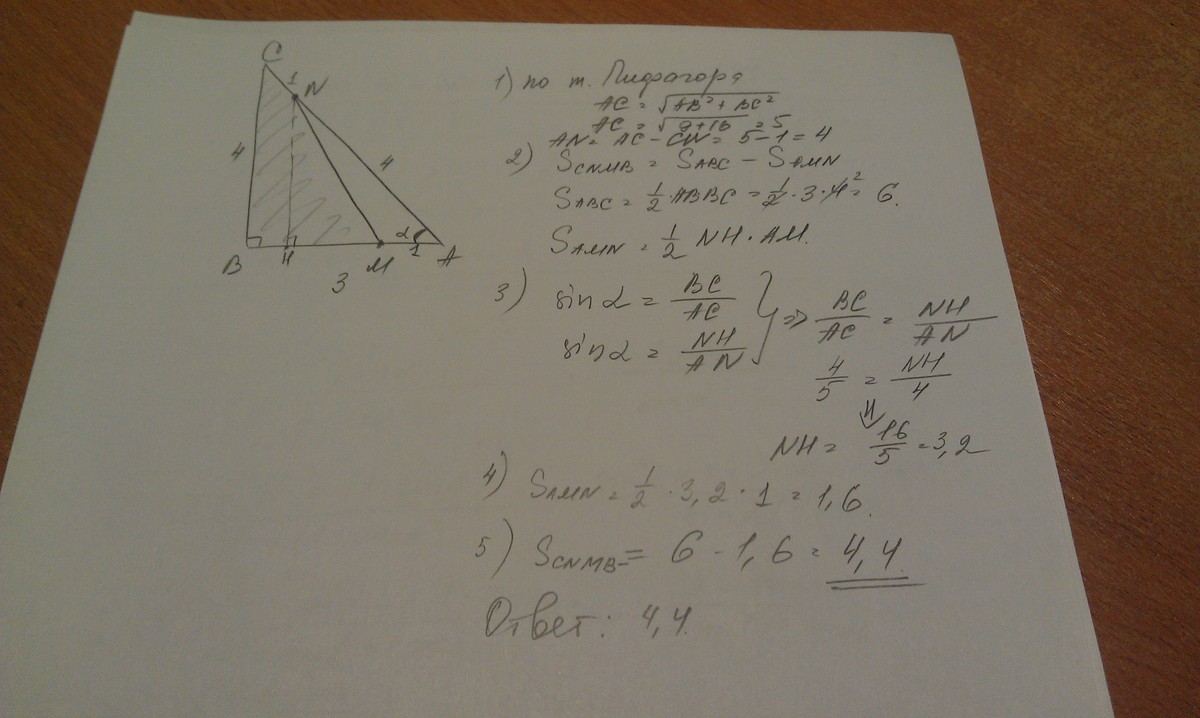 C
1
N
4
4
α
1
B
H
M
A
3
1) по т. Пифагора
AC = √AB² + BC²
AC = √9+16 = 5
AN = AC - CN = 5-1 = 4
2) SCNMB = SABC - SAMN
SABC = 1/2 · ABBC = 1/2 · 3 · 4 2 = 6.
SAMN = 1/2 NH · AM.
3) sin α = BC/AC
sin α = NH/AN } => BC/AC = NH/AN
4/5 = NH/4
⇓
NH = 16/5 = 3,2
4) SAMN = 1/2 · 3,2 · 1 = 1,6.
5) SCNMB = 6 - 1,6 = 4,4.
Ответ: 4,4.